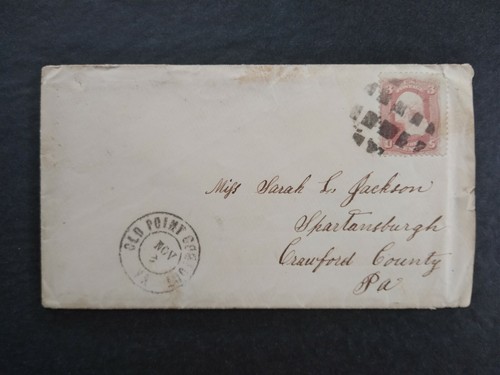 3 3
U 3
Miss Sarah L. Jackson
Spartansburgh
Crawford County
Pa
OLD POINT COMFORT
NOV
2
VA